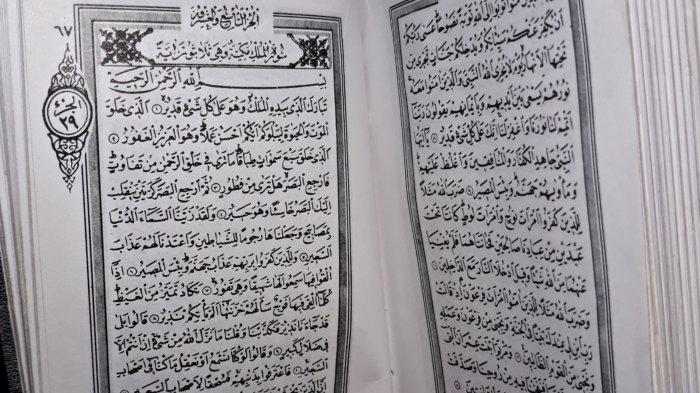 امَنُوا تُوبُوا اِلَى اللهِ تَوْبَةً نَصُوحًا عَسٰى رَبُّكُمْ
اَنْ يُكَفِّرَ عَنْكُمْ سَيِّئَاتِكُمْ وَيُدْخِلَكُمْ جَنَّاتٍ تَجْرِي مِنْ
تَحْتِهَا الْاَنْهَارُ يَوْمَ لَا يُخْزِي اللهُ النَّبِيَّ وَالَّذِينَ اٰمَنُوا مَعَهُ
نُورُهُمْ يَسْعٰى بَيْنَ اَيْدِيهِمْ وَبِاَيْمَانِهِمْ يَقُولُونَ رَبَّنَا
اَتْمِمْ لَنَا نُورَنَا وَاغْفِرْ لَنَا اِنَّكَ عَلٰى كُلِّ شَيْءٍ قَدِيرٌ يَا اَيُّهَا
النَّبِيُّ جَاهِدِ الْكُفَّارَ وَالْمُنَافِقِينَ وَاغْلُظْ عَلَيْهِمْ
وَمَأْوٰيهُمْ جَهَنَّمُ وَبِئْسَ الْمَصِيرُ ضَرَبَ اللهُ مَثَلًا
لِلَّذِينَ كَفَرُوا امْرَاَتَ نُوحٍ وَامْرَاَتَ لُوطٍ كَانَتَا تَحْتَ
عَبْدَيْنِ مِنْ عِبَادِنَا صَالِحَيْنِ فَخَانَتَاهُمَا فَلَمْ يُغْنِيَا
عَنْهُمَا مِنَ اللهِ شَيْئًا وَقِيلَ ادْخُلَا النَّارَ مَعَ الدَّاخِلِينَ
وَضَرَبَ اللهُ مَثَلًا لِلَّذِينَ اٰمَنُوا امْرَاَتَ فِرْعَوْنَ اِذْ قَالَتْ
رَبِّ ابْنِ لِي عِنْدَكَ بَيْتًا فِي الْجَنَّةِ وَنَجِّنِي مِنْ فِرْعَوْنَ وَعَمَلِهِ
وَنَجِّنِي مِنَ الْقَوْمِ الظَّالِمِينَ وَمَرْيَمَ ابْنَتَ عِمْرَانَ الَّتِي
اَحْصَنَتْ فَرْجَهَا فَنَفَخْنَا فِيهِ مِنْ رُوحِنَا وَصَدَّقَتْ
الجزء التاسع والعشرون
٦٧
سورة الملك مكية وهي ثلاثون آية
الجزء
٢٩
بِسْمِ اللهِ الرَّحْمٰنِ الرَّحِيمِ
تَبَارَكَ الَّذِي بِيَدِهِ الْمُلْكُ وَهُوَ عَلٰى كُلِّ شَيْءٍ قَدِيرٌ ١ اَلَّذِي خَلَقَ
الْمَوْتَ وَالْحَيٰوةَ لِيَبْلُوَكُمْ اَيُّكُمْ اَحْسَنُ عَمَلًا وَهُوَ الْعَزِيزُ الْغَفُورُ ٢
الَّذِي خَلَقَ سَبْعَ سَمٰوَاتٍ طِبَاقًا مَا تَرٰى فِي خَلْقِ الرَّحْمٰنِ مِنْ تَفَاوُتٍ
فَارْجِعِ الْبَصَرَ هَلْ تَرٰى مِنْ فُطُورٍ ٣ ثُمَّ ارْجِعِ الْبَصَرَ كَرَّتَيْنِ يَنْقَلِبْ
اِلَيْكَ الْبَصَرُ خَاسِئًا وَهُوَ حَسِيرٌ ٤ وَلَقَدْ زَيَّنَّا السَّمَاءَ الدُّنْيَا
بِمَصَابِيحَ وَجَعَلْنَاهَا رُجُومًا لِلشَّيَاطِينِ وَاَعْتَدْنَا لَهُمْ عَذَابَ
السَّعِيرِ ٥ وَلِلَّذِينَ كَفَرُوا بِرَبِّهِمْ عَذَابُ جَهَنَّمَ وَبِئْسَ الْمَصِيرُ ٦ اِذَا
اُلْقُوا فِيهَا سَمِعُوا لَهَا شَهِيقًا وَهِيَ تَفُورُ ٧ تَكَادُ تَمَيَّزُ مِنَ الْغَيْظِ
كُلَّمَا اُلْقِيَ فِيهَا فَوْجٌ سَاَلَهُمْ خَزَنَتُهَا اَلَمْ يَأْتِكُمْ نَذِيرٌ ٨ قَالُوا بَلٰى
قَدْ جَاءَنَا نَذِيرٌ فَكَذَّبْنَا وَقُلْنَا مَا نَزَّلَ اللهُ مِنْ شَيْءٍ اِنْ اَنْتُمْ اِلَّا
فِي ضَلَالٍ كَبِيرٍ ٩ وَقَالُوا لَوْ كُنَّا نَسْمَعُ اَوْ نَعْقِلُ مَا كُنَّا فِي اَصْحَابِ
السَّعِيرِ ١٠ فَاعْتَرَفُوا بِذَنْبِهِمْ فَسُحْقًا لِاَصْحَابِ السَّعِيرِ ١١